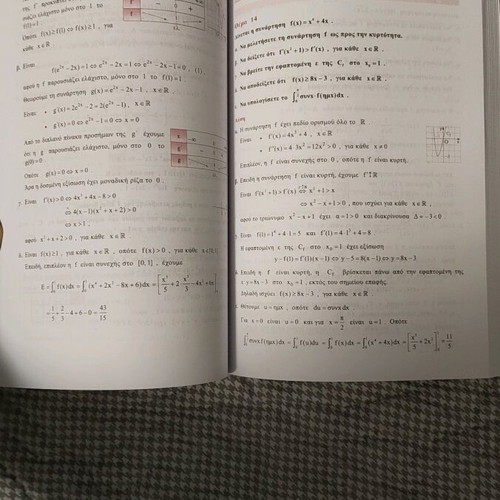 της f΄ προκύπτει
ελάχιστο μόνο στο 1 το
f(1)=1.
Οπότε f(x)≥f(1)⇔f(x)≥1, για
κάθε x∈ℝ
β. Είναι
f(e²ˣ−2x)=1⇔e²ˣ−2x=1⇔e²ˣ−2x−1=0, (1)
αφού η f παρουσιάζει ελάχιστο, μόνο στο 1 το f(1)=1
θεωρούμε τη συνάρτηση g(x)=e²ˣ−2x−1, x∈ℝ.
Είναι • g΄(x)=2e²ˣ−2=2(e²ˣ−1), x∈ℝ
• g΄(x)=0⇔e²ˣ−1=0⇔x=0
Από το διπλανό πίνακα προσήμου της g΄ έχουμε
ότι η g παρουσιάζει ελάχιστο, μόνο στο 0 το
g(0)=0.
Οπότε g(x)=0⇔x=0
Άρα η δοσμένη εξίσωση έχει μοναδική ρίζα το 0.
γ. Είναι f΄(x)>0⇔4x³+4x−8>0
⇔4(x−1)(x²+x+2)>0
⇔x>1,
αφού x²+x+2>0, για κάθε x∈ℝ.
δ. Είναι f(x)≥1, για κάθε x∈ℝ, οπότε f(x)>0, για κάθε x∈ℝ.
Επειδή, επιπλέον η f είναι συνεχής στο [0,1], έχουμε
E=∫₀¹f(x)dx=∫₀¹(x⁴+2x²−8x+6)dx=[x⁵/5+2x³/3−4x²+6x]₀¹
=1/5+2/3−4+6−0=43/15
Θέμα 14
Δίνεται η συνάρτηση f(x)=x⁴+4x.
α. Να μελετήσετε τη συνάρτηση f ως προς την κυρτότητα.
β. Να δείξετε ότι f΄(x²+1)>f΄(x), για κάθε x∈ℝ.
γ. Να βρείτε την εφαπτομένη ε της C_f στο x₀=1.
δ. Να αποδείξετε ότι f(x)≥8x−3, για κάθε x∈ℝ.
ε. Να υπολογίσετε το ∫₀^(π/2)συνx·f(ημx)dx.
α. Η συνάρτηση f έχει πεδίο ορισμού όλο το ℝ.
Είναι • f΄(x)=4x³+4, x∈ℝ
• f΄΄(x)=4·3x²=12x²>0, για κάθε x≠0
Επιπλέον, η f΄ είναι συνεχής στο 0, οπότε η f είναι κυρτή.
β. Επειδή η συνάρτηση f είναι κυρτή, έχουμε f΄↑ℝ
Είναι f΄(x²+1)>f΄(x)⇔x²+1>x
⇔x²−x+1>0, που ισχύει για κάθε x∈ℝ,
αφού το τριώνυμο x²−x+1 έχει α=1>0 και διακρίνουσα Δ=−3<0
γ. Είναι f(1)=1⁴+4·1=5 και f΄(1)=4·1³+4=8.
Η εφαπτομένη ε της C_f στο x₀=1 έχει εξίσωση
y−f(1)=f΄(1)(x−1)⇔y−5=8(x−1)⇔y=8x−3.
δ. Επειδή η f είναι κυρτή, η C_f βρίσκεται πάνω από την εφαπτομένη της
ε: y=8x−3 στο x₀=1, εκτός του σημείου επαφής.
Δηλαδή ισχύει f(x)≥8x−3, για κάθε x∈ℝ.
ε. Θέτουμε u=ημx, οπότε du=συνxdx
Για x=0 είναι u=0 και για x=π/2 είναι u=1. Οπότε
∫₀^(π/2)συνxf(ημx)dx=∫₀¹f(u)du=∫₀¹f(x)dx=∫₀¹(x⁴+4x)dx=[x⁵/5+2x²]₀¹=11/5